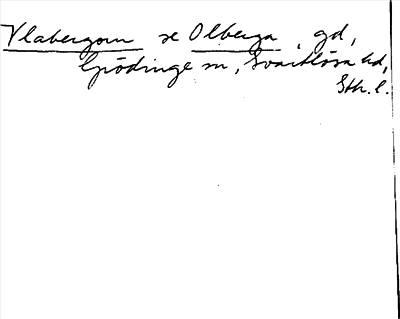 Vlabergom se Olberga, gd,
Grödinge sn, Svartlösa hd,
Sth. l.